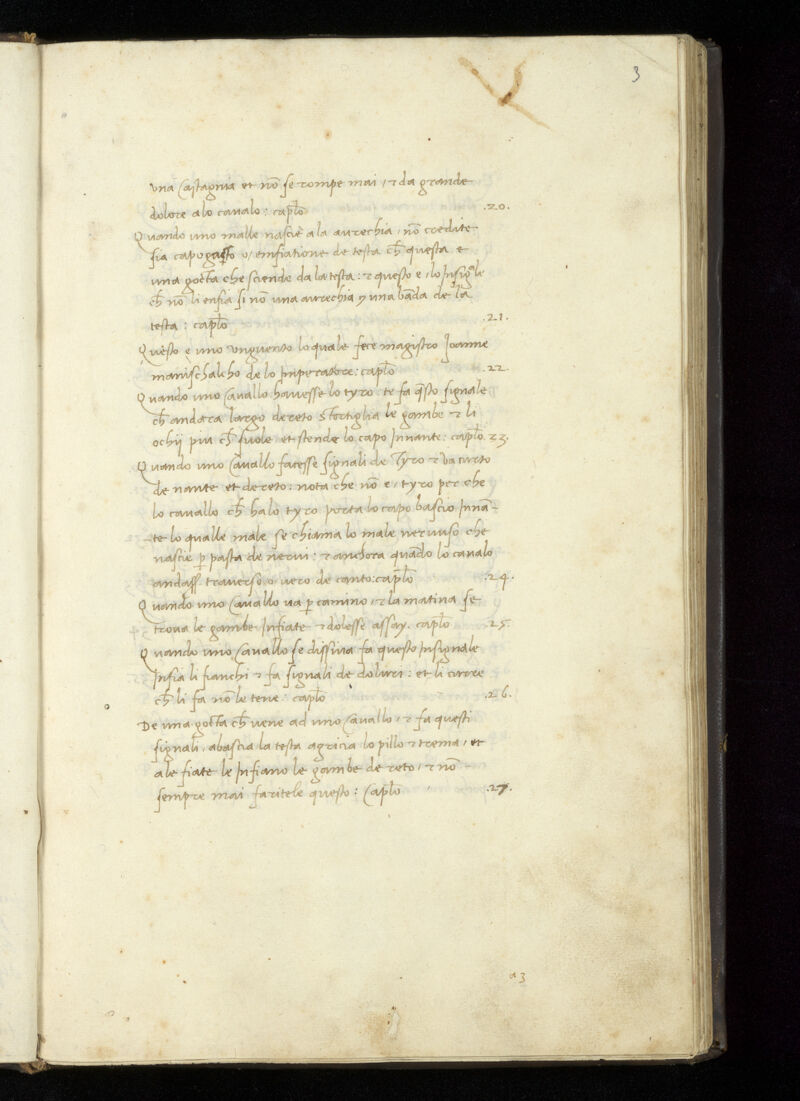 3
una Castagnia et nō se rompe mai / et da grande
dolore a lo cavalo : caplō .20.
Quando uno malle nascie a la aurechia / nō credite
sia capogatto o / emfiatione de testa ch̄ questa e
una gocta che sciende da la testa : et questo e / lo Insignale
ch̄ nō li enfia si nō una aurechia y una bāda de la
testa : caplō .21.
Questo è uno unguento lo quale fece magistro Joanne
manischalcho de lo Imperatore : caplō .22.
Quando uno Cavallo havesse lo tyro te fa q̄sto signale
ch̄ andara largo dereto stortiglia le gambe et li
ochij piu ch̄ suole et stende lo capo Innante : caplō .23.
Quando uno Cavallo facesse signali de Tyro et va curto
de nante et dereto : nota che nō e / tyro per che
lo cavallo ch̄ ha lo tyro porta lo capo bascio Innā-
te lo qualle male se chiama lo male nervuso che
nascie p̄ pasta de nervi : et anchora quādo lo cavalo
andass. traverso o vero de canto : caplō .24.
Quando uno Cavallo va p̄ camino / et la matina se
trova le gambe Infiate et dolesse assay. caplō .25.
Quando uno Cavallo se dissina fa questo Insignale
Infia li fianchi et fa signali de doluri : et li curre
ch̄ li fa nō le tene : caplō .26.
De una gocta ch̄ vene ad uno Cavallo / et fa questi
signali / abascia la testa agricia lo pillo et trema / et
a le fiate le Infiano le gambe de reto / et nō
sempre mai faritele questo : Caplō .27.
a 3